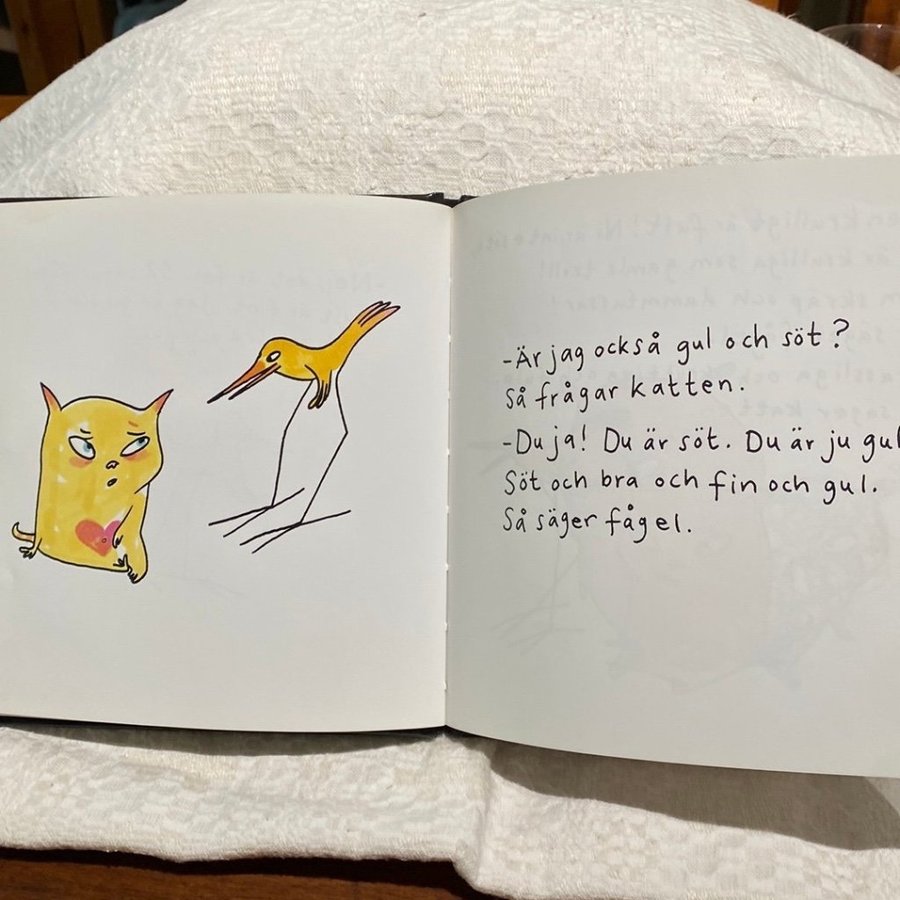 -Är jag också gul och söt?
Så frågar katten.
-Du ja! Du är söt. Du är ju gul
Söt och bra och fin och gul.
Så säger fågel.